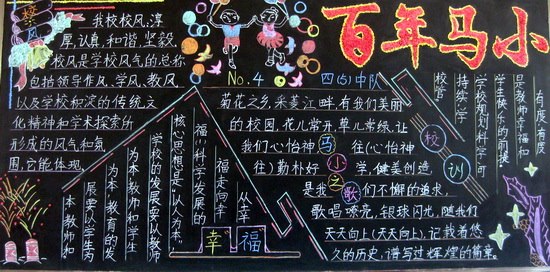 百年马小
No.4 四(5)中队
校风
我校校风:淳
厚,认真,和谐,坚毅.
校风是学校风气的总称,
包括领导作风,学风,教风,
以及学校和淀的传统文
化精神和学术探索所
形成的风气和氛
围,它能体现,
菊花之乡,来菱江畔,有我们美丽
的校园,花儿常开,草儿常绿,让
我们心怡神往(心怡神
往)勤朴好学,健美创造,
是我们不懈的追求.
歌唱嘹亮,银球闪光,随我们
天天向上(天天向上),记载着悠
久的历史,谱写过辉煌的篇章.
马小之歌
校训
有度有度
是教师幸福
学生快乐的前提
学校规划科学可
持续
校管
从幸
福走向幸
福!科学发展的
核心思想是"以人为本"
学校的发展要以教师
为本,教师和学生
为本,教育的发
展要以学生为
本,教师和
幸福